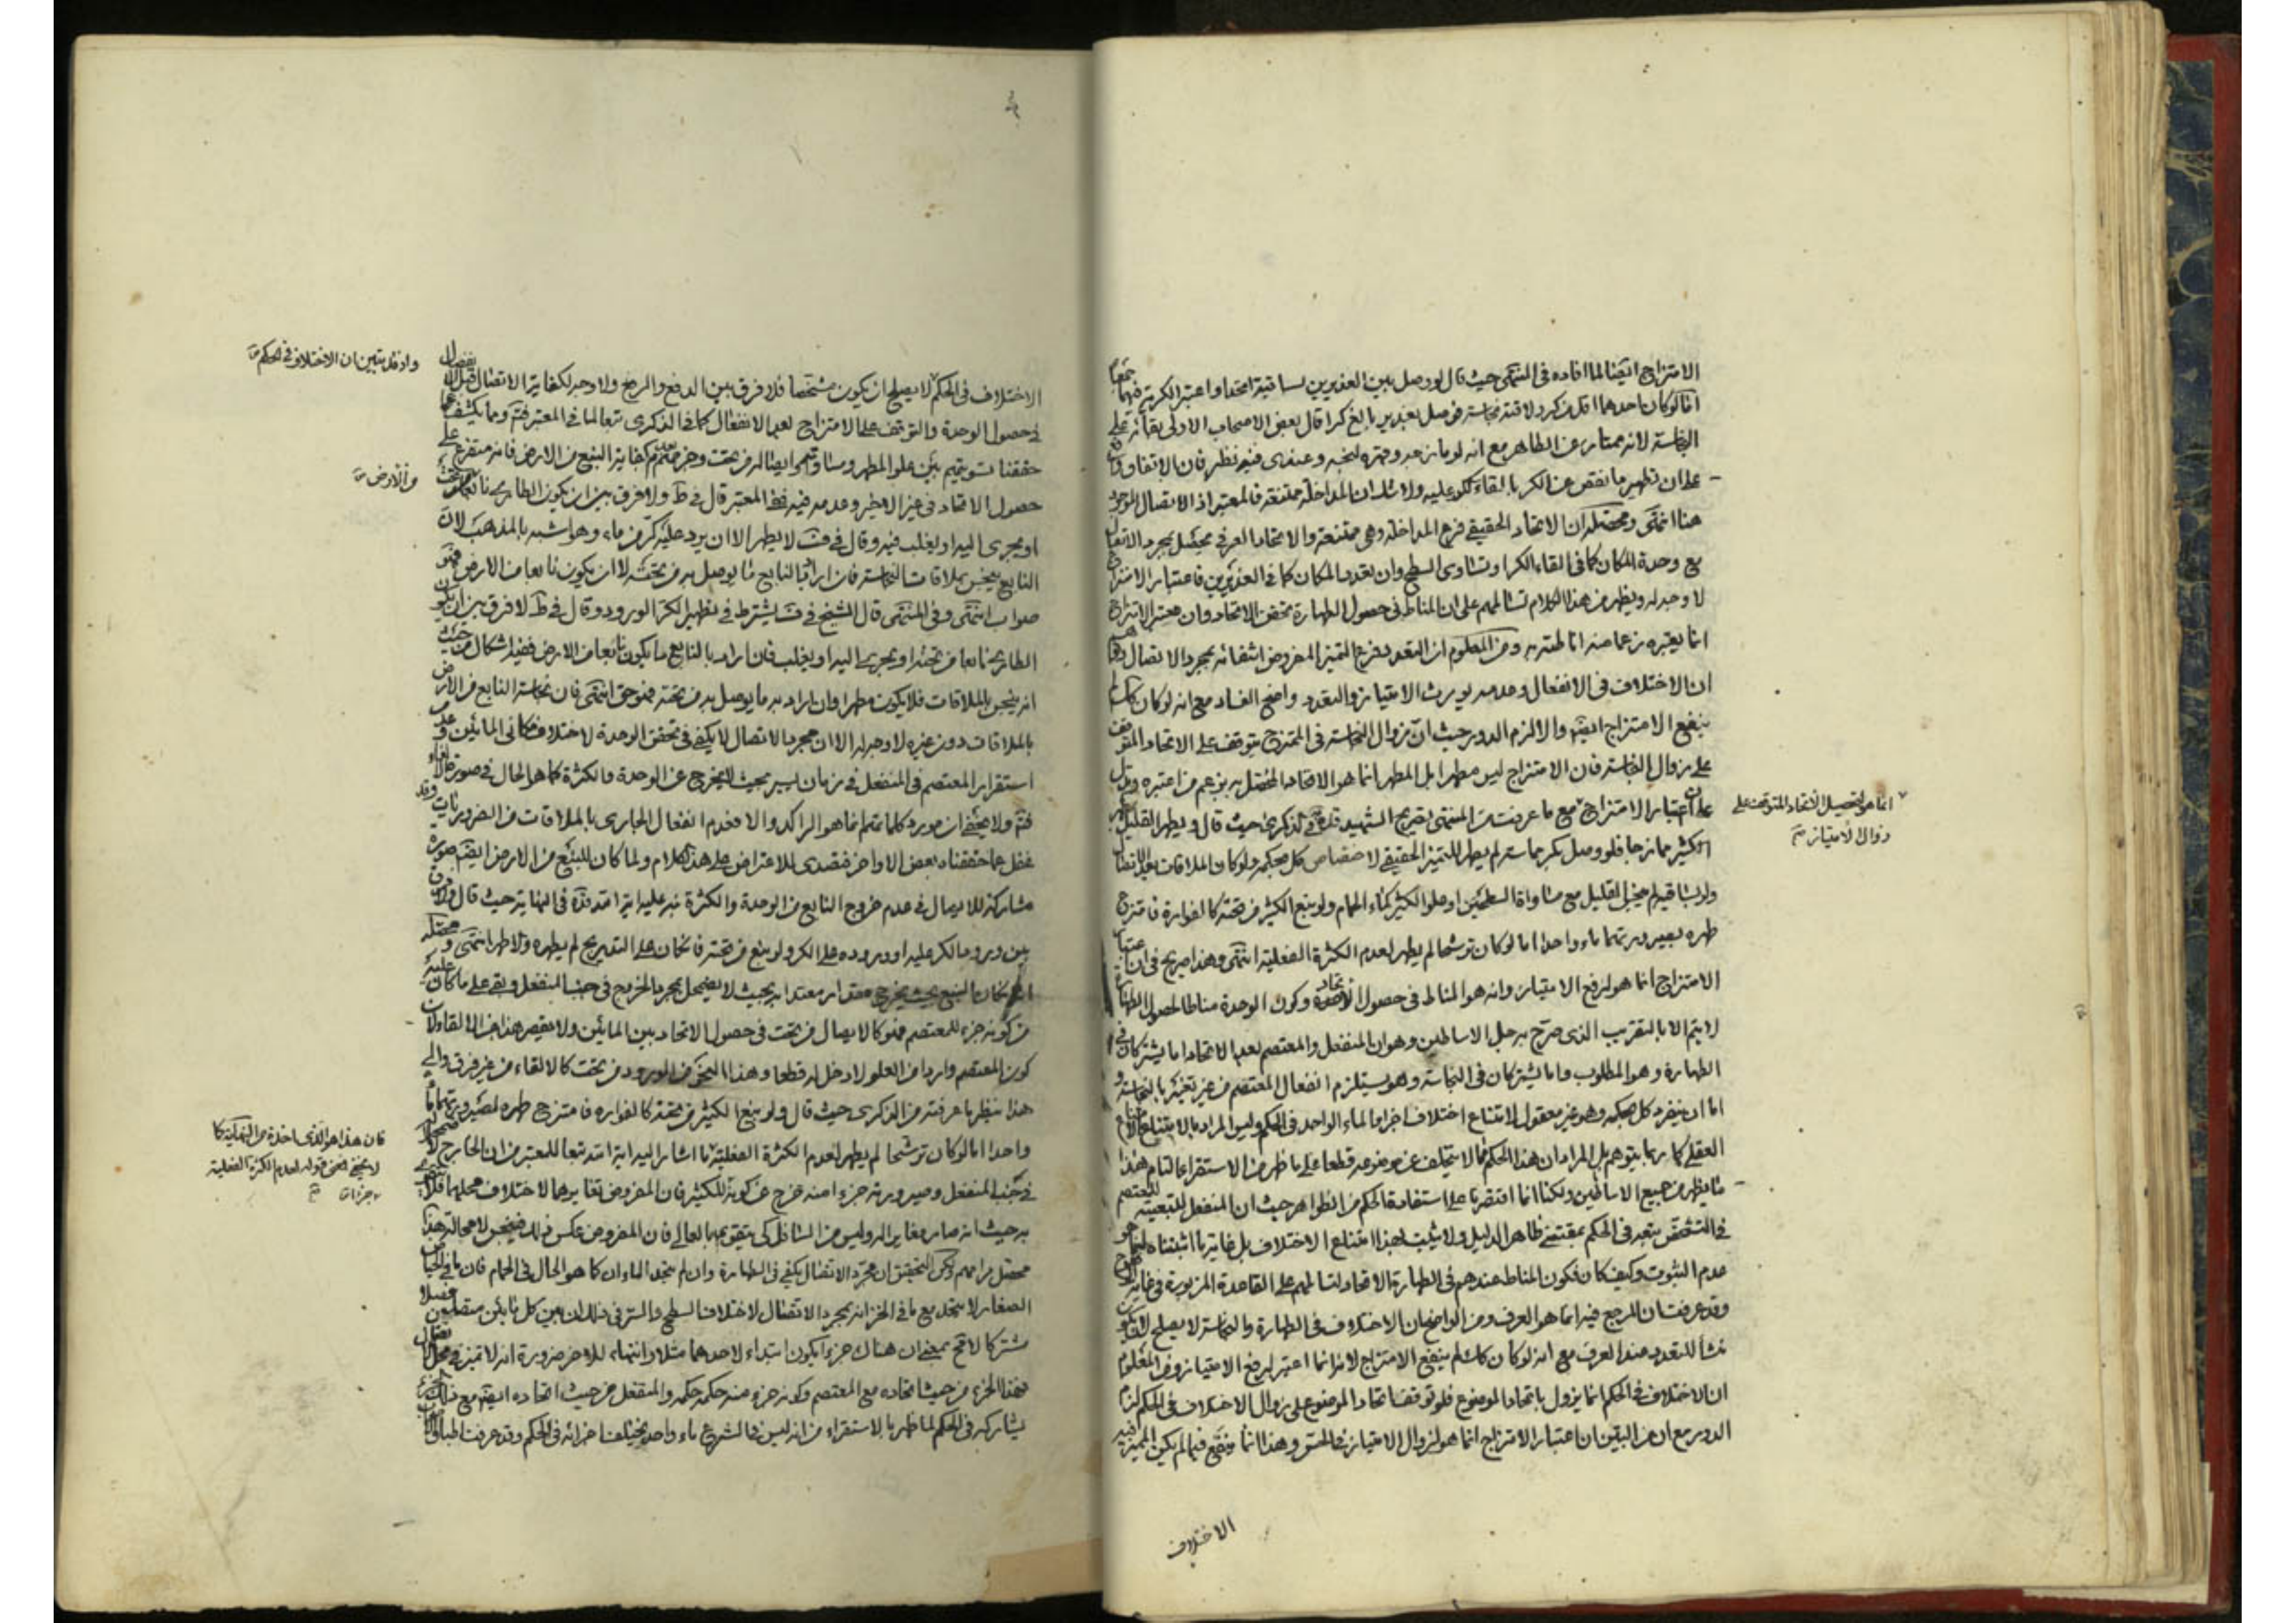 الامتزاج ايضا لما افاده في المنتهى حيث قال لو وصل بين الغديرين بساقية اتحدا واعتبر الكرية فيهما جمعا
اما لو كان احدهما اقل من كر ولاقته نجاسة فوصل بغدير بالغ كرا قال بعض الاصحاب الاولى بقائه على
النجاسة لانه ممتاز عن الطاهر مع انه لو مازجه وقهره لنجسه وعندي فيه نظر فان الاتفاق واقع
على ان تطهير ما نقص عن الكر بالقاء كر عليه ولا شك ان المداخلة ممتنعة فالمعتبر اذا الاتصال الموجود
هنا انتهى ومحصله ان الاتحاد الحقيقي فرع المداخلة وهي ممتنعة والاتحاد العرفي محصل بمجرد الاتصال
مع وحدة المكان كما في القاء الكر او تساوي السطح وان تعدد المكان كما في الغديرين فاعتبار الامتزاج
لا وجه له ويظهر من هذا الكلام تسالمهم على ان المناط في حصول الطهارة تحقق الاتحاد وان معتبر الامتزاج
انما يعتبره زعما منه اناطته به ومن المعلوم ان التعدد فرع التميز المفروض انتفائه بمجرد الاتصال
ان الاختلاف في الانفعال وعدمه يورث الامتياز والتعدد واضح الفساد مع انه لو كان كك لم
ينفع الامتزاج ايضا والا لزم الدور حيث ان زوال النجاسة في الممتزج متوقف على الاتحاد المتوقف
على زوال النجاسة فان الامتزاج ليس مطهرا بل المطهر انما هو الاتحاد المحصل به بزعم من اعتبره ويدل
على ان اعتبار الامتزاج مع ما عرفت من المنتهى تصريح الشهيد في الذكرى حيث قال ويطهر القليل
انما هو لتحصيل الاتحاد المتوقف على
زوال الامتياز صح
الكثير ممازجا فلو وصل بكر مماسة لم يطهر للتميز الحقيقي لاختصاص كل بحكمه ولو كان الملاقات بعد الاتصال
ولو بساقية لم ينجس القليل مع مساواة السطحين او علو الكثير كماء الحمام ولو نبع الكثير من تحته كالفوارة فامتزج
طهره بصيرورتهما ماء واحدا اما لو كان ترشحا لم يطهر لعدم الكثرة الفعلية انتهى وهذا صريح في ان اعتبار
الامتزاج انما هو لرفع الامتياز وانه هو المناط في حصول الاتحاد وكون الوحدة مناطا لحصول الطهارة
لا يتم الا بالتقريب الذي صرح به جل الاساطين وهو ان المنفعل والمعتصم بعد الاتحاد اما يشتركان في
الطهارة وهو المطلوب واما يشتركان في النجاسة وهو يستلزم انفعال المعتصم من غير تغيره بالنجاسة و
اما ان ينفرد كل بحكمه وهو غير معقول لامتناع اختلاف اجزاء الماء الواحد في الحكم وليس المراد بالامتناع الامتناع
العقلي كما ربما يتوهم بل المراد ان هذا الحكم مما لا يتخلف عن موضوعه قطعا على ما ظهر من الاستقراء التام هذا
ما يظهر من جميع الاساطين ولكنا انما اقتصرنا على استفادة الحكم من الظواهر حيث ان المنفعل للتبعية للمعتصم
في التشخص يتبعه في الحكم بمقتضى ظاهر الدليل ولا يثبت بهذا امتناع الاختلاف بل غاية ما اثبتناه انما هو
عدم الثبوت وكيف كان فكون المناط عندهم في الطهارة الاتحاد لتسالمهم على القاعدة المزبورة في غاية الوضوح
وقد عرفت ان المرجع فيه انما هو العرف ومن الواضح ان الاختلاف في الطهارة والنجاسة لا يصلح لان يكون
منشأ للتعدد عند العرف مع انه لو كان كك لم ينفع الامتزاج لانه انما اعتبر لرفع الامتياز ومن المعلوم
ان الاختلاف في الحكم انما يزول باتحاد الموضوع فلو توقف اتحاد الموضوع على زوال الاختلاف في الحكم لزم
الدور مع ان من البين ان اعتبار الامتزاج انما هو لزوال الامتياز في الحس وهذا انما ينفع فيما لم يكن المميز فيه
الاختلاف
واذ قد تبين ان الاختلاف في الحكم صح
الاختلاف في الحكم لا يصلح ان يكون مشخصا فلا فرق بين الدفع والرفع ولا وجه لكفاية الاتصال قبل الانفصال
في حصول الوحدة والتوقف على الامتزاج بعد الانفعال كما في الذكرى تبعا لما في المعتبر فتم ومما يكشف عما
حققنا تسويتهم بين علو المطهر ومساواتهما وايصاله من تحت وجزمهم بعدم كفاية النبع من الارض فانه متفرع على
من الارض صح
حصول الاتحاد في غير الاخير وعدمه فيه ففي المعتبر قال في ط ولا فرق بين ان يكون الطاري نابعا من تحته
او يجري اليه او يغلب فيه وقال في ف لا يطهر الا ان يرد عليه كر من ماء وهو اشبه بالمذهب لان
النابع ينجس بملاقات النجاسة فان اراد بالنابع ما يوصل به من تحته لا ان يكون نابعا من الارض فهو
صواب انتهى وفي المنتهى قال الشيخ في ف يشترط في تطهير الكر الورود وقال في ط لا فرق بين ان يكون
الطاري نابعا من تحته او يجري اليه او يغلب فان اراد بالنابع ما يكون نابعا من الارض ففيه اشكال من حيث
انه ينجس بالملاقات فلا يكون مطهرا وان اراد به ما يوصل به من تحته فهو حق انتهى فان نجاسة النابع من الارض
بالملاقات دون غيره لا وجه له الا ان مجرد الاتصال لا يكفي في تحقق الوحدة لاختلاف مكاني المائين وعدم
استقرار المعتصم في المنفعل في زمان يسير بحيث لا يخرج عن الوحدة والكثرة كما هو الحال في صورة الالقاء
فتم ولا يخفى ان مورد كلماتهم انما هو الراكد والا فعدم انفعال الجاري بالملاقات من الضروريات وقد
غفل عما حققناه بعض الاواخر فتصدى للاعتراض على هذا الكلام ولما كان للنبع من الارض ايضا صورة
مشاركة للايصال في عدم خروج النابع من الوحدة والكثرة نبه عليه اية الله قده في النهاية حيث قال ولا فرق
بين ورود الكر عليه او وروده على الكر ولو نبع من تحته فان كان على التدريج لم يطهره والا طهر انتهى ومحصله
انه ان كان النبع بحيث يخرج مقدار معتد به بحيث لا يضمحل بمجرد الخروج في جنب المنفعل وبقى على ما كان عليه
من كونه جزء للمعتصم فهو كالايصال من تحت في حصول الاتحاد بين المائين ولا يقصر هذا عن الالقاء لان
كون المعتصم واردا من العلو لا دخل له قطعا وهذا النحو من الورود من تحت كالالقاء من غير فرق والى
هذا ينظر ما عرفته من الذكرى حيث قال ولو نبع الكثير من تحته كالفواره فامتزج طهره لصيرورتهما ماء
واحدا اما لو كان ترشحا لم يطهر لعدم الكثرة الفعلية ما اشار اليه اية الله تبعا للمعتبر من ان الخارج لاضمحلاله
فان هذا هو الذي اخذه من النهاية كما
لا يخفى فمعنى قوله لعدم الكثرة الفعلية
في جنب المنفعل وصيرورته جزء منه خرج عن كونه جزء للكثير فان المفروض تغايرهما لاختلاف محلهما فلا عبرة
به حيث انه صار مغايرا له وليس من السافل كي يتقوى بالعالي فان المفروض عكس ذلك فينجس لا محالة هذا
محصل مرامهم ولكن التحقيق ان مجرد الاتصال يكفي في الطهارة وان لم يتحد الماءان كما هو الحال في الحمام فان ما في الحياض
الصغار لا يتحد مع ما في الخزانة بمجرد الاتصال لاختلاف السطح والسر في ذلك ان بين كل مائين متصلين فصلا
مشتركا لا محالة بمعنى ان هناك جزءا يكون ابتداء لاحدهما مثلا وانتهاء للاخر ضرورة انه لا تميز في محل الاتصال
فهذا الجزء من حيث اتحاده مع المعتصم وكونه جزء منه حكمه حكمه والمنفعل من حيث اتحاده ايضا مع ذلك الجزء
يشاركه في الحكم لما ظهر بالاستقراء من انه ليس في الشرع ماء واحد يختلف اجزائه في الحكم وقد عرفت اطباق